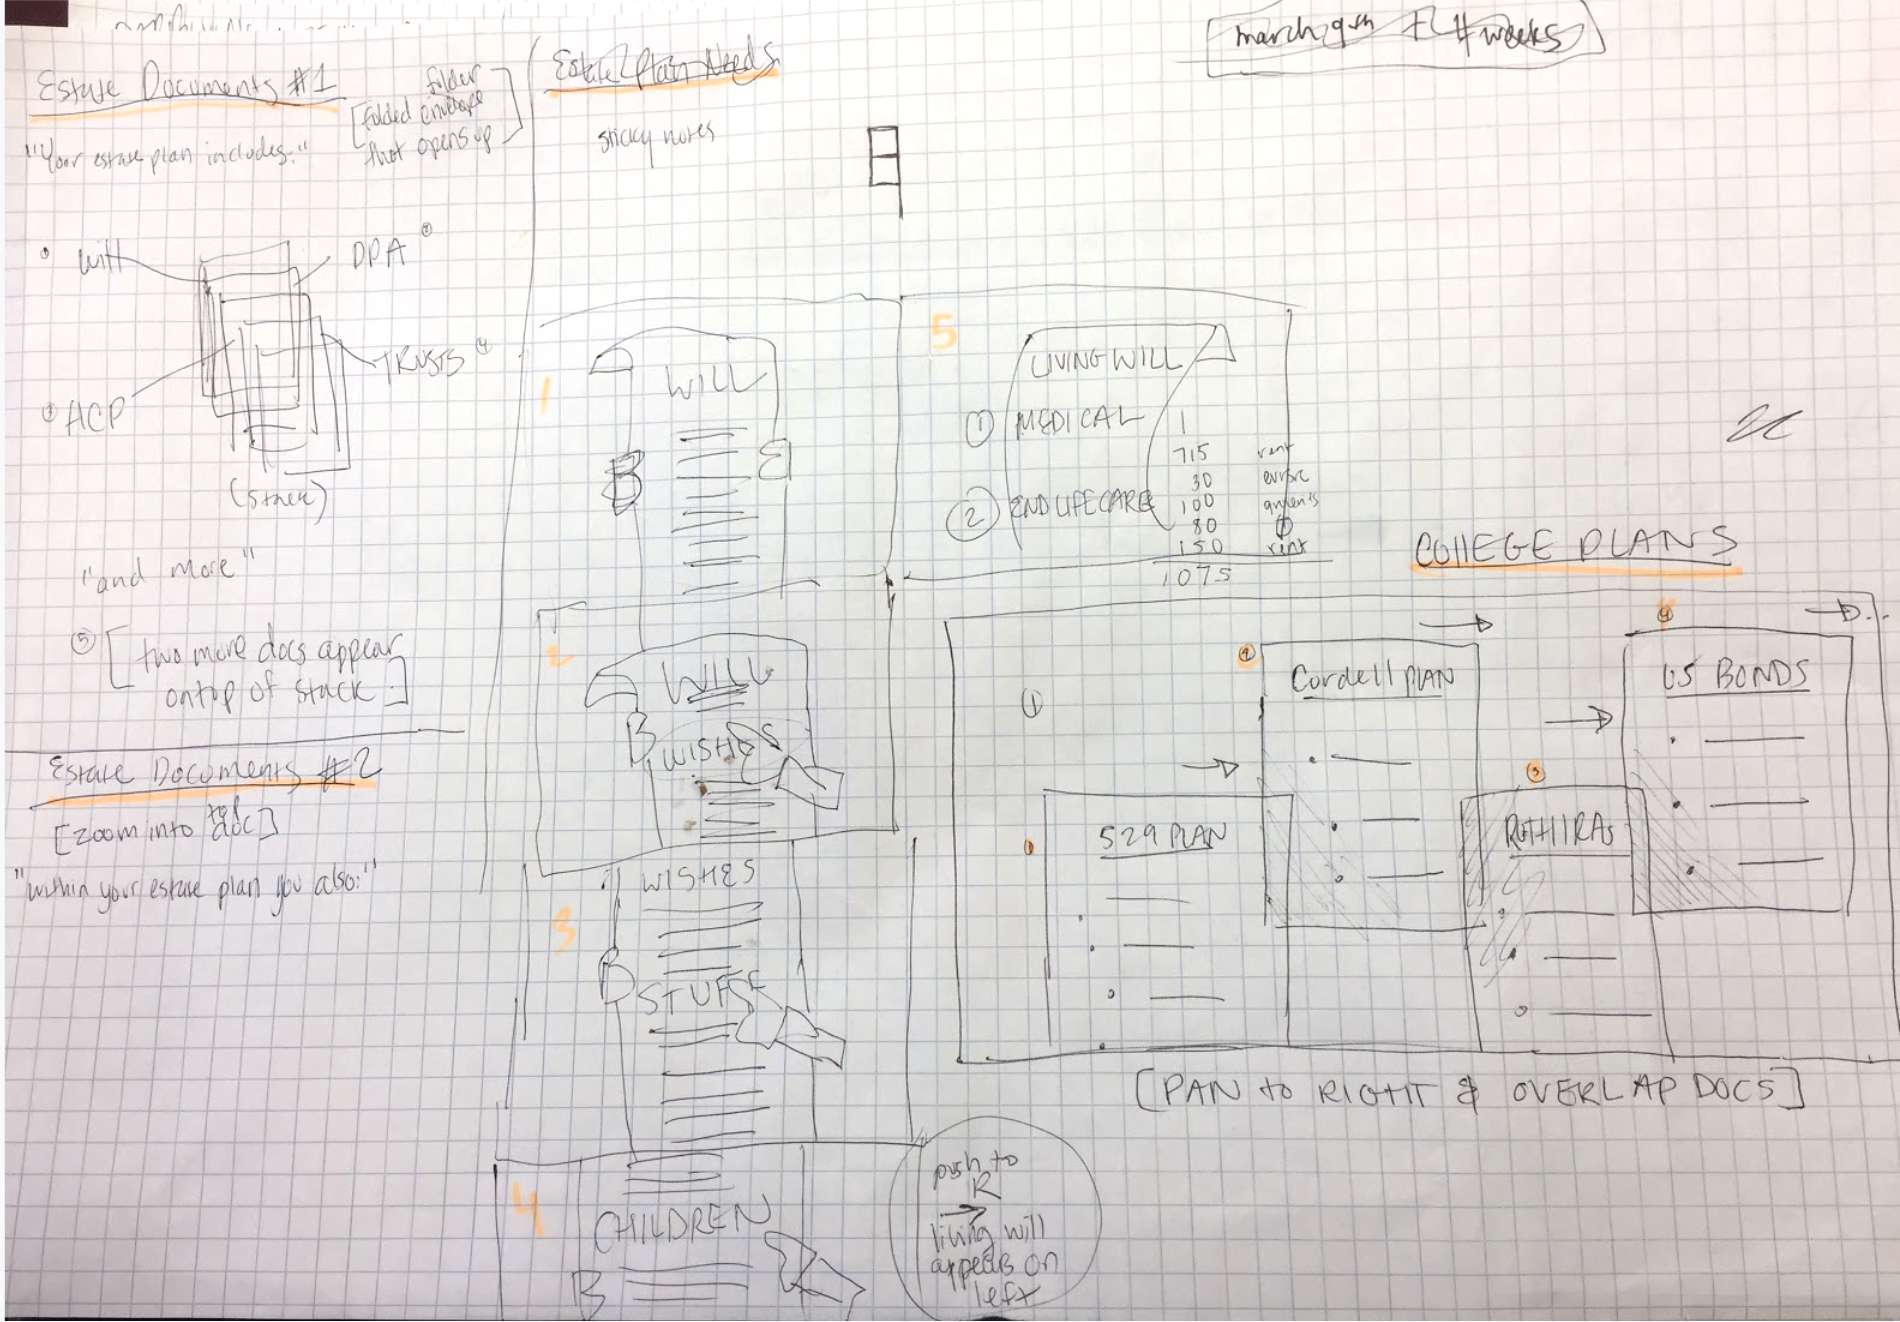 march 9th + # weeks
Estate Documents #1
[folder
folded envelope
that opens up]
"Your estate plan includes:"
① Will
DPA ②
TRUSTS ④
③ ACP
(Stack)
"and more"
⑤ [two more docs appear
ontop of stack.]
Estate Documents #2
[zoom into top doc]
"within your estate plan you also:"
Estate Plan Needs
sticky notes
1
WILL
B
2
WILL
B
WISHES
3
WISHES
B
STUFF
4
CHILDREN
B
push to
R
living will
appears on
left
5
LIVING WILL
① MEDICAL
② END LIFE CARE
715 rent
30
100
80
150 rent
1075
COLLEGE PLANS
①
① 529 PLAN
② Cordell PLAN
③ ROTH IRAs
④ US BONDS
[PAN to RIGHT & OVERLAP DOCS]